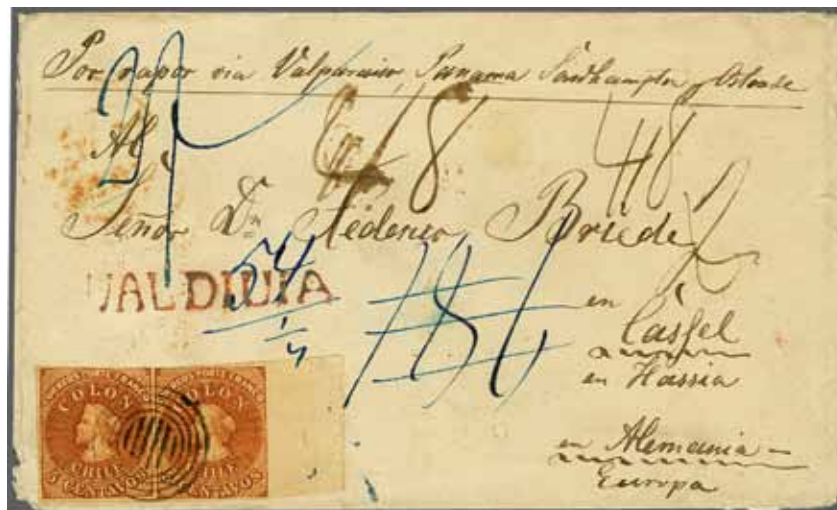 Por vapor via Valparaiso, Panama Southampton y Ostende
Al
48
48
Señor Dn Federico Briede
VALDIVIA
54
1/4
en
Cassel
en Hassia
en Alemania
Europa
COLON COLON
CHILE CHILE
5 CENTAVOS CENTAVOS